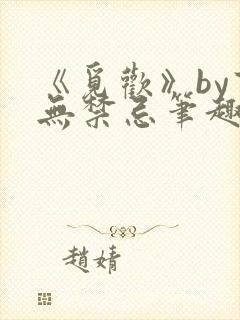 《覓歡》by
無禁忌筆趣
趙婧